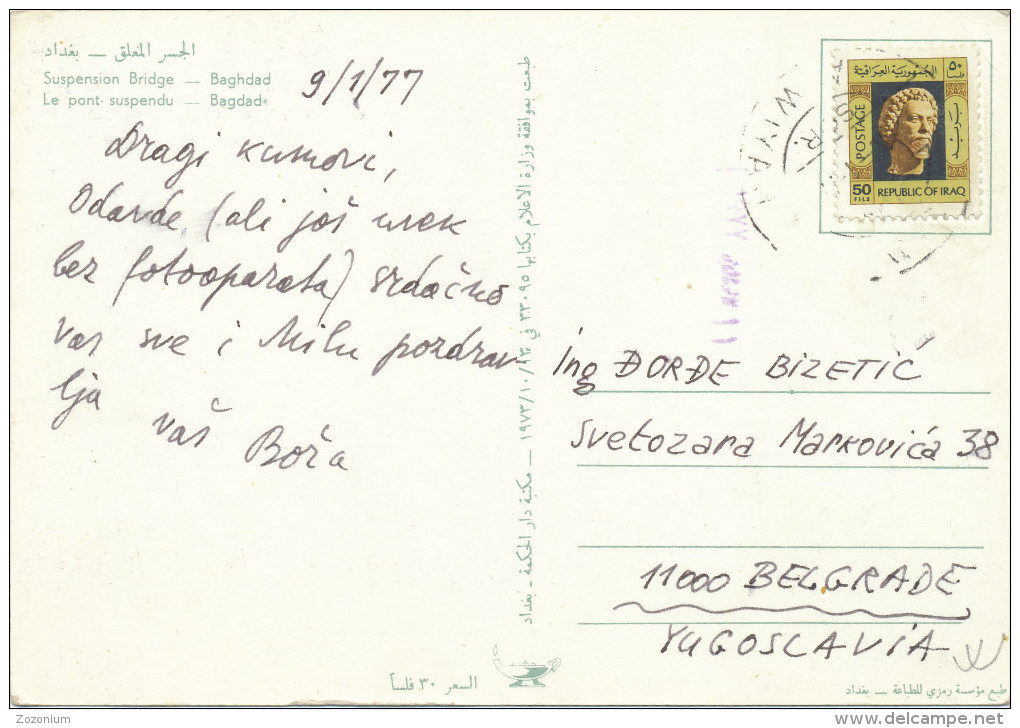 الجسر المعلق — بغداد
Suspension Bridge — Baghdad
Le pont suspendu — Bagdad
9/1/77
Dragi kumovi,
Odavde, (ali još uvek
bez fotoaparata) srdačno
vas sve i Milu pozdrav
lja
vaš Boža
طبعت بموافقة وزارة الاعلام بكتابها ٣٣٠٩٥ في ١٩٧٣/١٠/١٣ — مكتبة دار الحكمة - بغداد
الجمهورية العراقية
٥٠
فلساً
بريد
POSTAGE
50
FILS
REPUBLIC OF IRAQ
ing ĐORĐE BIZETIC
Svetozara Markovića 38
11000 BELGRADE
YUGOSLAVIA
السعر ٣٠ فلساً
طبع مؤسسة رمزي للطباعة — بغداد
Zozonium
delcampe.net